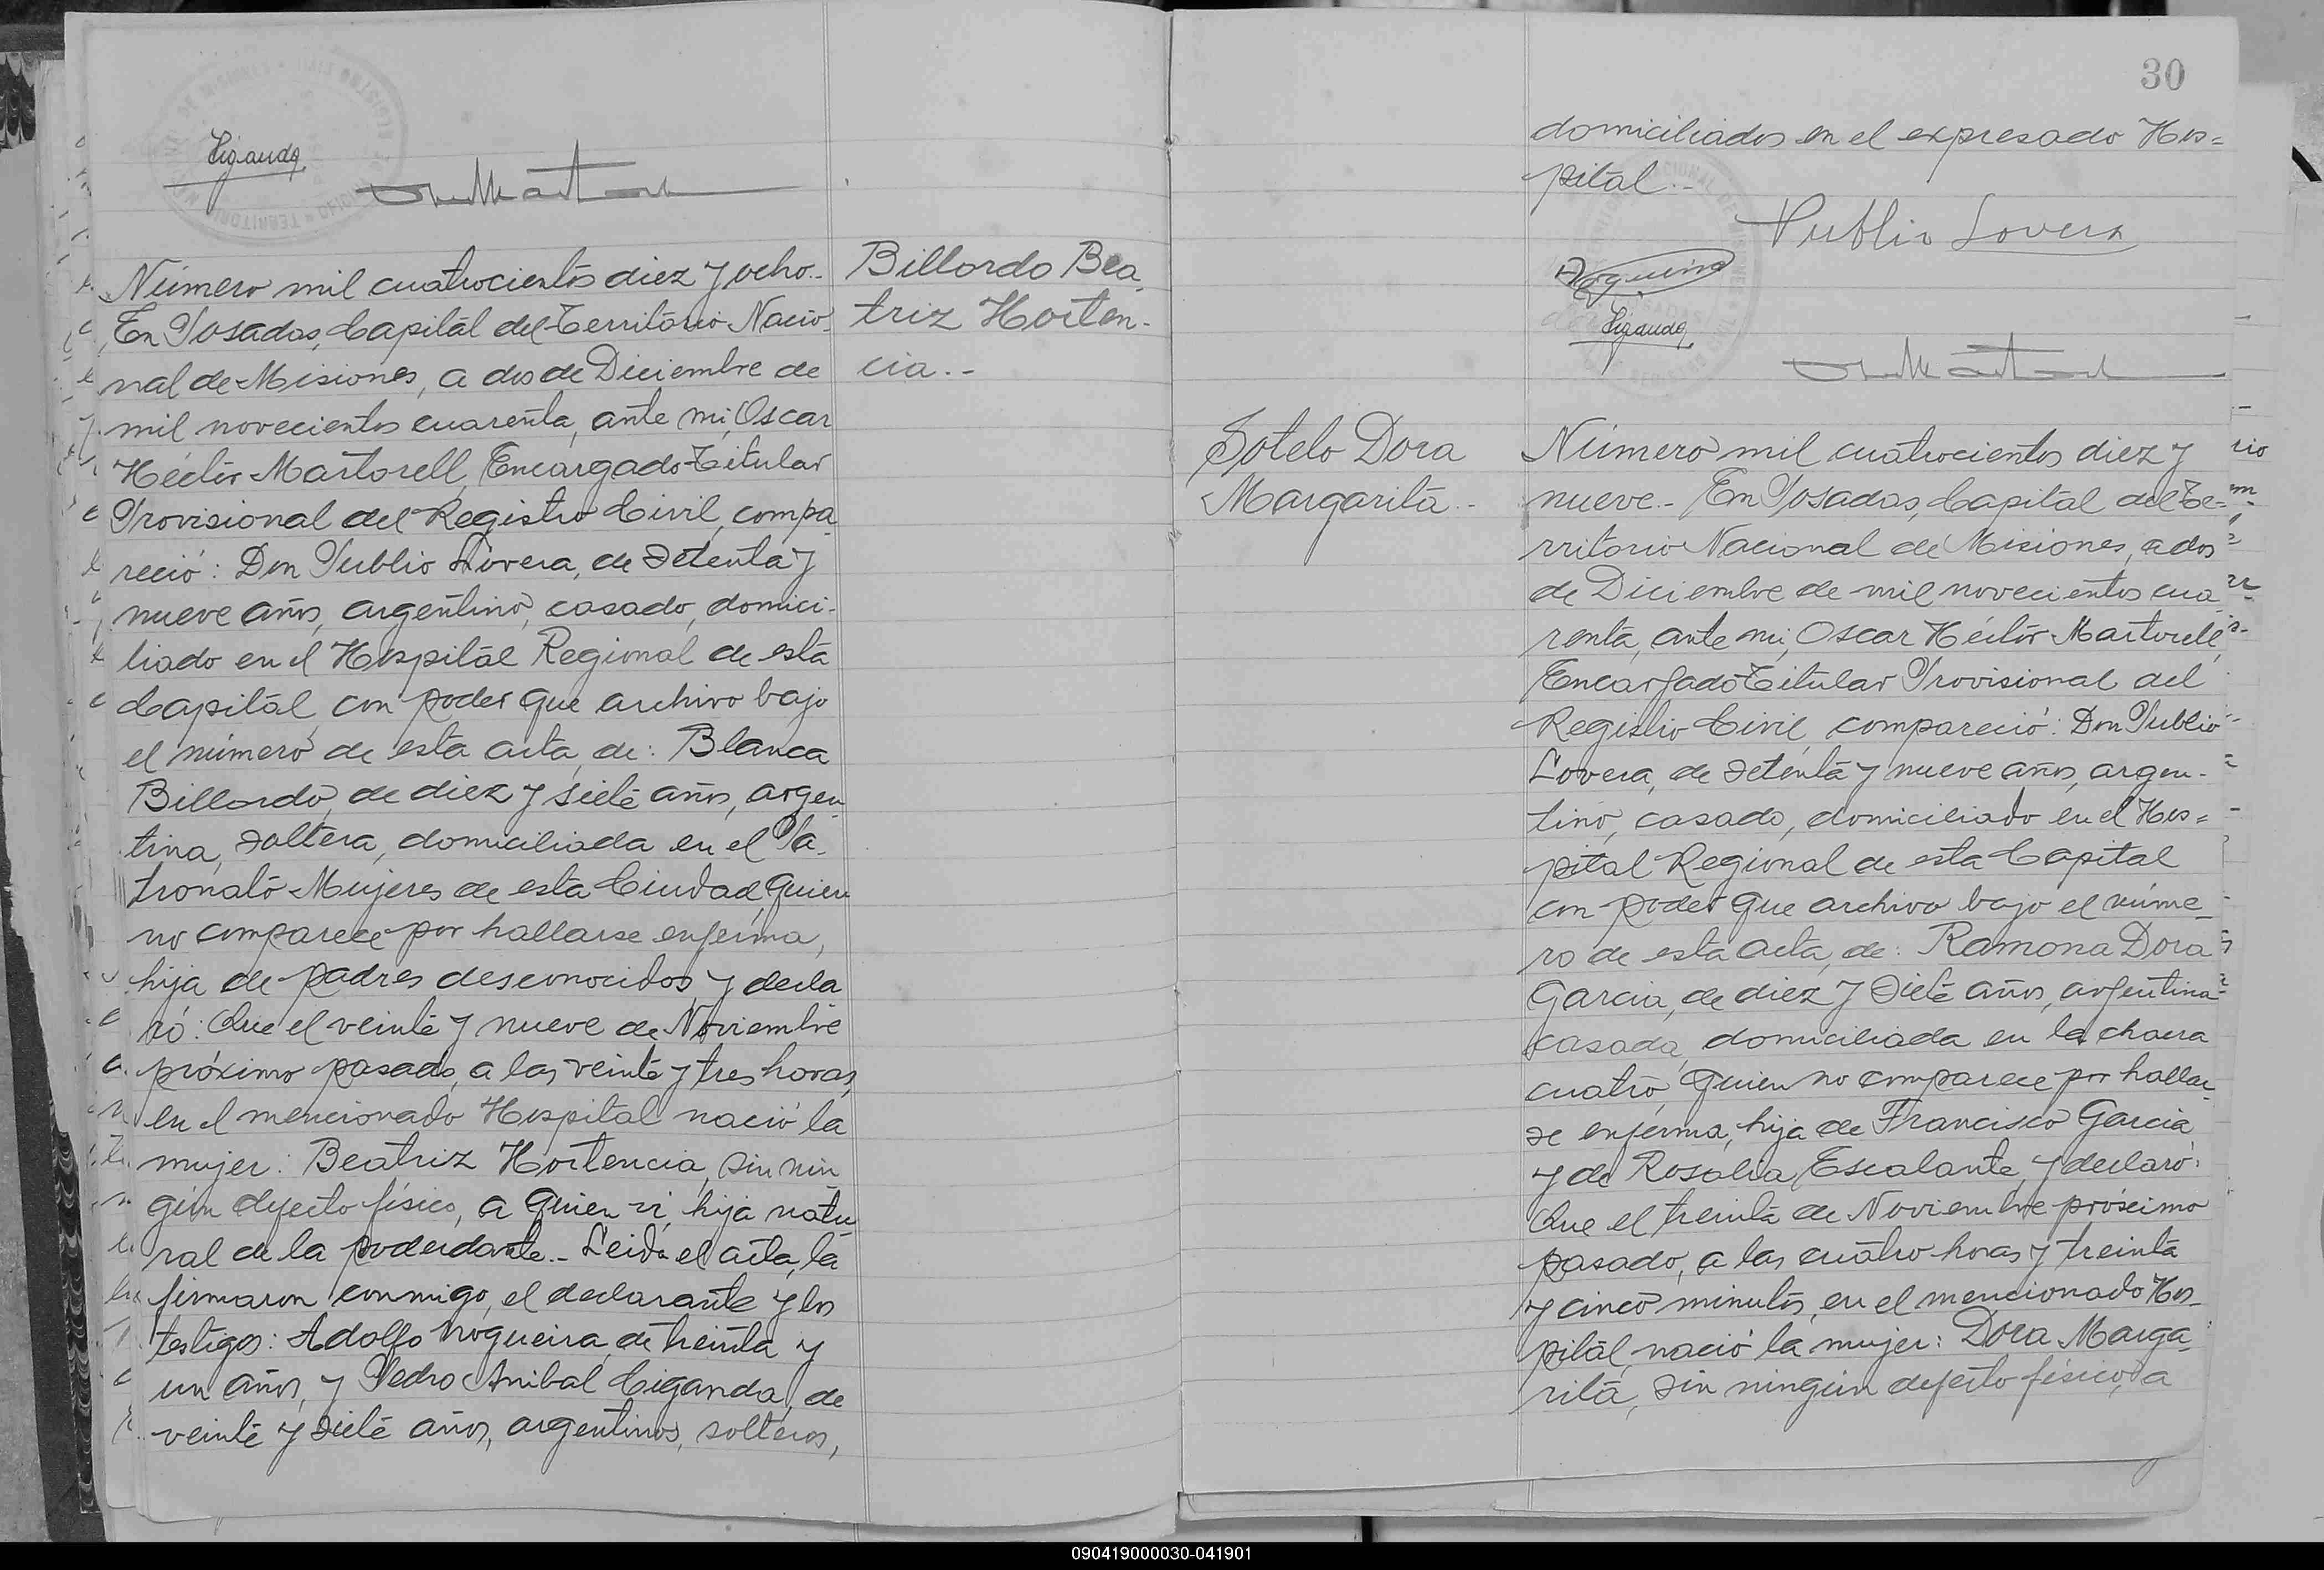 Ciganda
Número mil cuatrocientos diez y ocho.-
En Posadas, Capital del Territorio Nacio-
nal de Misiones, a dos de Diciembre de
mil novecientos cuarenta, ante mi, Oscar
Héctor Martorell, Encargado Titular
Provisional del Registro Civil, compa-
reció: Don Publio Lovera, de setenta y
nueve años, argentino, casado, domici-
liado en el Hospital Regional de esta
Capital, con poder que archivo bajo
el número de esta acta, de: Blanca
Billordo, de diez y siete años, argen-
tina, soltera, domiciliada en el Pa-
tronato Mujeres de esta Ciudad, quien
no comparece por hallarse enferma,
hija de padres desconocidos, y decla-
ró: Que el veinte y nueve de Noviembre
próximo pasado, a las veinte y tres horas,
en el mencionado Hospital nació la
mujer: Beatriz Hortencia, sin nin-
gún defecto físico, a quien vi, hija natu-
ral de la poderdante.- Leida el acta, la
firmaron conmigo, el declarante y los
testigos: Adolfo Nogueira, de treinta y
un años, y Pedro Anibal Ciganda, de
veinte y siete años, argentinos, solteros,
Billordo Bea-
triz Horten-
cia.-
30
domiciliados en el expresado Hos=
pital.-
Publio Lovera
Ciganda
Sotelo Dora
Margarita.-
Número mil cuatrocientos diez y
nueve.- En Posadas, Capital del Te=
rritorio Nacional de Misiones, a dos
de Diciembre de mil novecientos cua-
renta, ante mi, Oscar Héctor Martorell,
Encargado Titular Provisional del
Registro Civil, compareció: Don Publio
Lovera, de setenta y nueve años, argen-
tino, casado, domiciliado en el Hos=
pital Regional de esta Capital
con poder que archivo bajo el núme-
ro de esta acta, de: Ramona Dora
Garcia, de diez y siete años, argentina
casada, domiciliada en la chacra
cuatro, quien no comparece por hallar-
se enferma, hija de Francisco Garcia
y de Rosalia Escalante, y declaró:
Que el treinta de Noviembre próximo
pasado, a las cuatro horas y treinta
y cinco minutos, en el mencionado Hos-
pital, nació la mujer: Dora Marga-
rita, sin ningún defecto físico, a
090419000030-041901